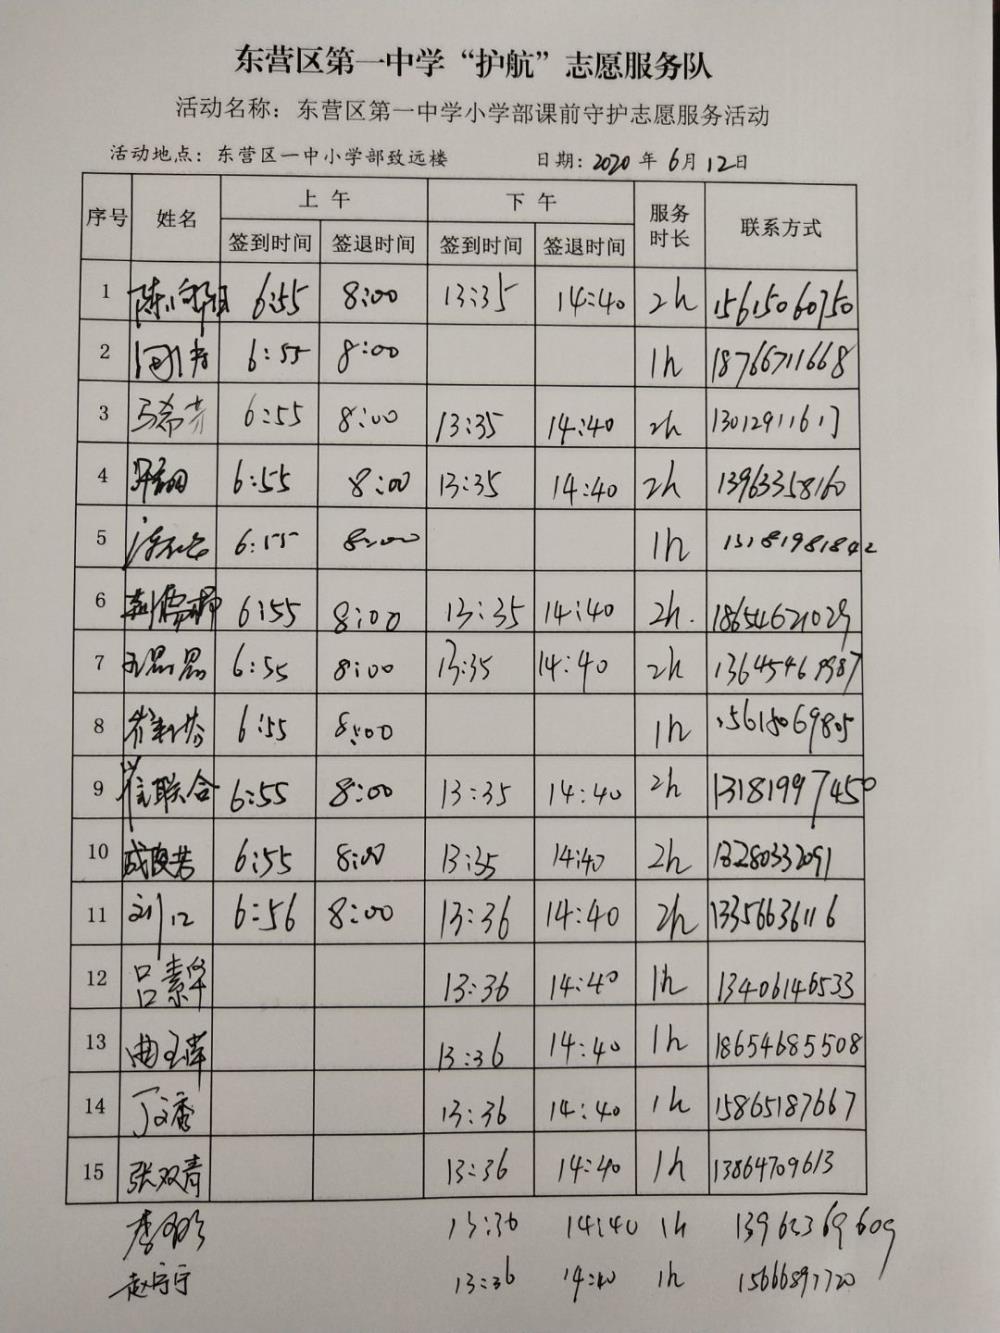 东营区第一中学“护航”志愿服务队
活动名称：东营区第一中学小学部课前守护志愿服务活动
活动地点：东营区一中小学部致远楼 日期：2020年6月12日
序号 姓名 上午 下午 服务时长 联系方式
签到时间 签退时间 签到时间 签退时间
1 6:55 8:00 13:35 14:40 2h 15615060750
2 6:55 8:00 1h 18766711668
3 马希芳 6:55 8:00 13:35 14:40 2h 13012911617
4 6:55 8:00 13:35 14:40 2h 13963358160
5 6:55 8:00 1h 13181981842
6 6:55 8:00 13:35 14:40 2h. 18654621029
7 王思思 6:55 8:00 13:35 14:40 2h
8 6:55 8:00 1h 15618069805
9 崔联合 6:55 8:00 13:35 14:40 2h 13181997450
10 6:55 8:00 13:35 14:40 2h 13280332091
11 6:56 8:00 13:36 14:40 2h 13356636116
12 吕素华 13:36 14:40 1h 13406146533
13 曲玉萍 13:36 14:40 1h 18654685508
14 丁文香 13:36 14:40 1h 15865187667
15 张双青 13:36 14:40 1h 13864709613
13:36 14:40 1h 13963369609
赵宁宁 13:36 14:40 1h 15666897720